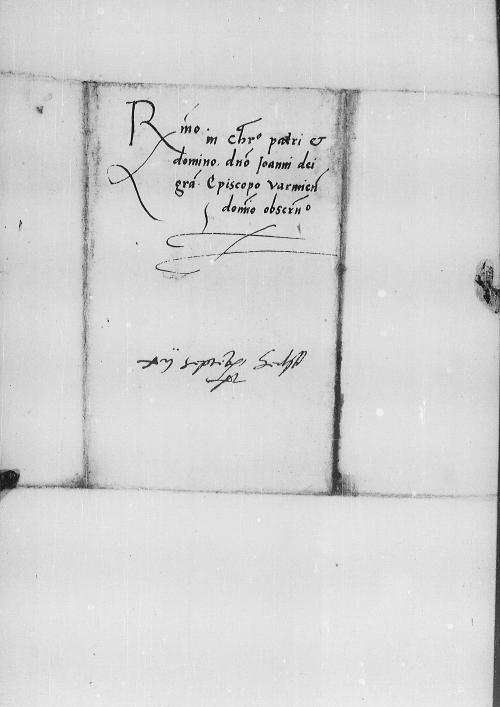 R mo in Chro patri &
domino. dno Joanni dei
gra. Episcopo Varmien
domio obserno